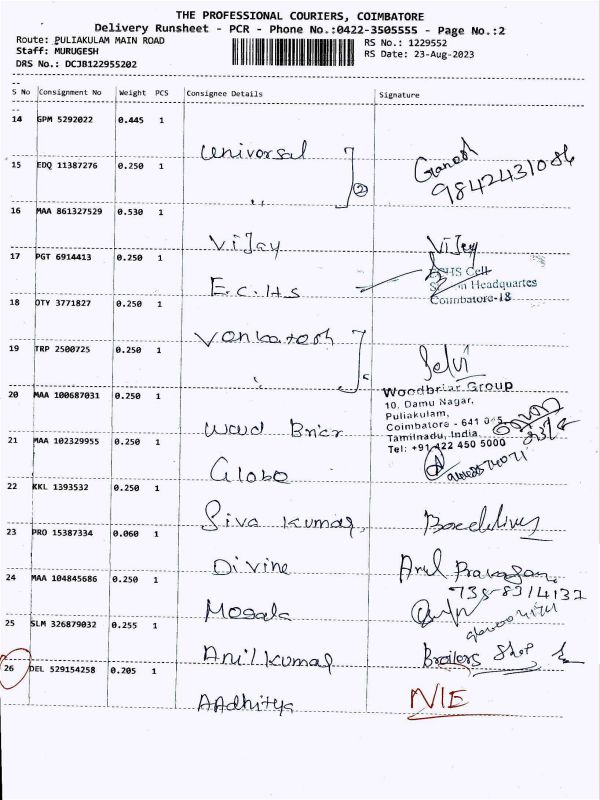 THE PROFESSIONAL COURIERS, COIMBATORE
Delivery Runsheet - PCR - Phone No.:0422-3505555 - Page No.:2
Route: PULIAKULAM MAIN ROAD
Staff: MURUGESH
DRS No.: DCJB122955202
RS No.: 1229552
RS Date: 23-Aug-2023
S No Consignment No Weight PCS Consignee Details Signature
14 GPM 5292022 0.445 1
Universal
Ganesh
15 EDQ 11387276 0.250 1
"
2
9842431086
16 MAA 861327529 0.530 1
Vijay Vijay
17 PGT 6914413 0.250 1
E.C.H.S
ECHS Cell
Station Headquartes
Coimbatore-18
18 OTY 3771827 0.250 1
Venkatesh
19 TRP 2500725 0.250 1
"
Selvi
20 MAA 100687031 0.250 1
Woodbriar Group
10, Damu Nagar,
Puliakulam,
Coimbatore - 641 045
Tamilnadu, India
Tel: +91 422 450 5000
Wood Briar
21 MAA 102329955 0.250 1
Globo
22 KKL 1393532 0.250 1
Siva Kumar,
23 PRO 15387334 0.060 1
Divine
24 MAA 104845686 0.250 1
Mogala
25 SLM 326879032 0.255 1
Anil Kumar Broilers Shop
26 DEL 529154258 0.205 1
AAdhitya N/E